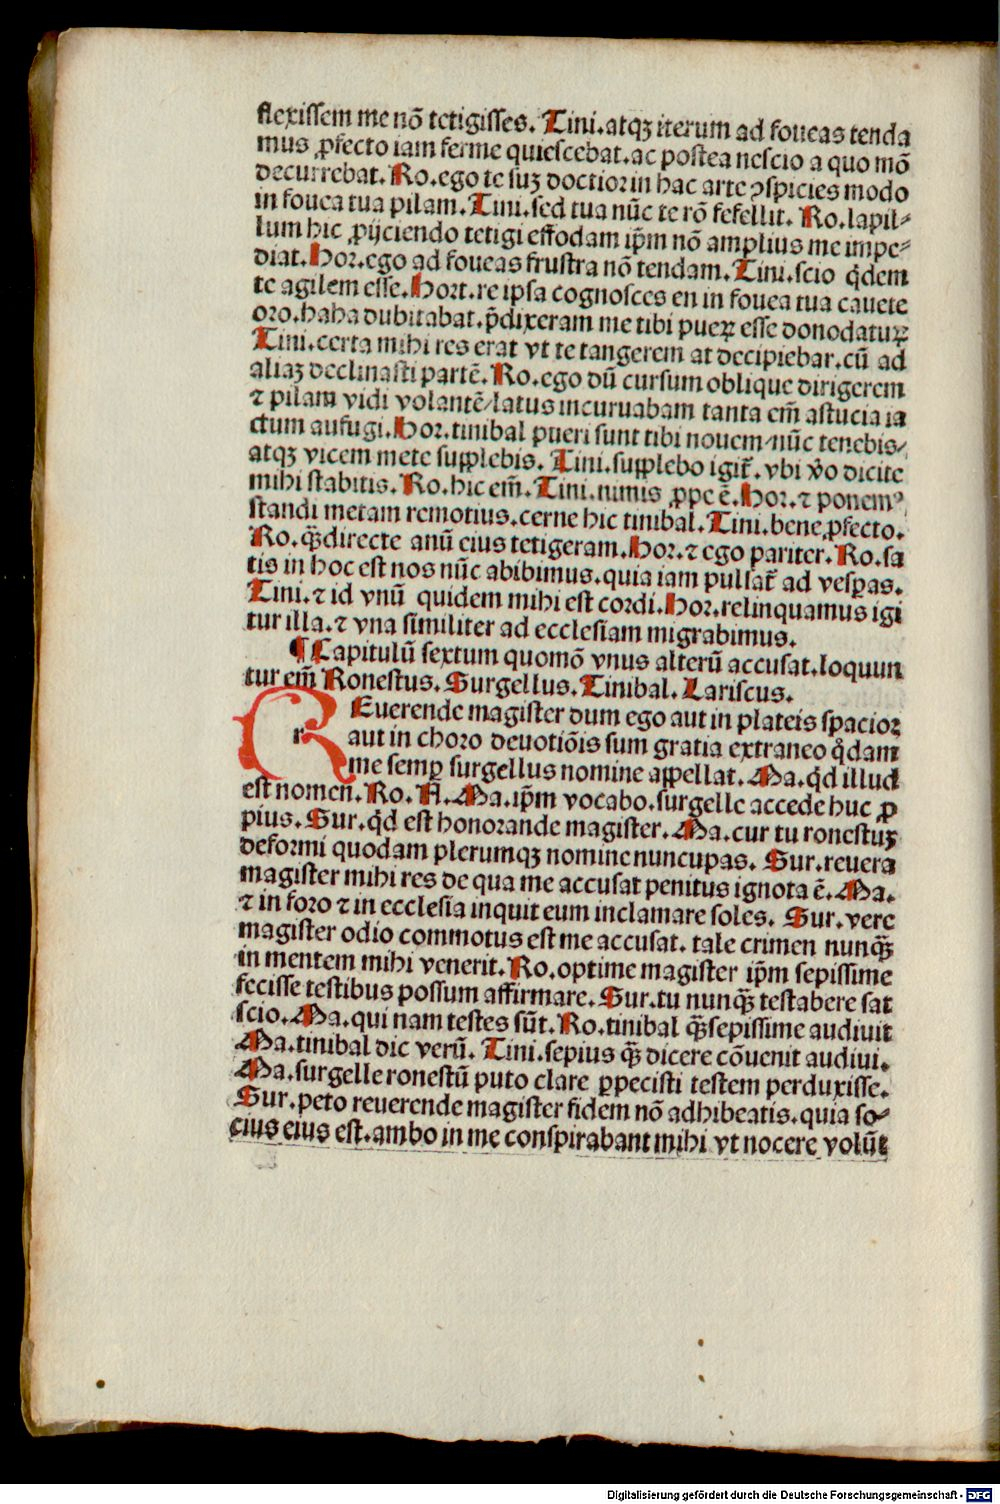 flexissem me nō tetigisses. Tini. atqꝫ iterum ad foueas tenda
mus ꝓfecto iam ferme quiescebat. ac postea nescio a quo mō
decurrebat. Ro. ego te suꝫ doctior in hac arte ꝯspicies modo
in fouea tua pilam. Tini. sed tua nūc te rō fefellit. Ro. lapil-
lum hic ꝓijciendo tetigi effodam ip̄m nō amplius me impe-
diat. Hor. ego ad foueas frustra nō tendam. Tini. scio qͥdem
te agilem esse. Hort. re ipsa cognosces en in fouea tua cauete
oro. haha dubitabat. p̄dixeram me tibi pueꝝ esse donodatuꝝ
Tini. certa mihi res erat vt te tangerem at decipiebar. cū ad
aliaꝫ declinasti partē. Ro. ego dū cursum oblique dirigerem
⁊ pilam vidi volantē/ latus incuruabam tanta em̄ astucia ia
ctum aufugi. Hor. tinibal pueri sunt tibi nouem/ nūc tenebis/
atqꝫ vicem mete supplebis. Tini. supplebo igit᷑. vbi v̊o dicite
mihi stabitis. Ro. hic em̄. Tini. nimis ꝓpe ē. Hor. ⁊ ponemꝰ
standi metam remotius. cerne hic tinibal. Tini. bene ꝓfecto.
Ro. qꝫ̄ directe anū eius tetigeram. Hor. ⁊ ego pariter. Ro. sa
tis in hoc est nos nūc abibimus. quia iam pulsat᷑ ad vesꝑas.
Tini. ⁊ id vnū quidem mihi est cordi. Hor. relinquamus igi
tur illa. ⁊ vna similiter ad ecclesiam migrabimus.
¶ Capitulū sextum quomō vnus alterū accusat. loquun
tur em̄ Ronestus. Surgellus. Tinibal. Lariscus.
rEuerende magister dum ego aut in plateis spacior
aut in choro deuotiōis sum gratia extraneo qͦdam
me semꝑ surgellus nomine appellat. Ma. qd̓ illud
est nomen. Ro. A. Ma. ip̄m vocabo. surgelle accede huc ꝓ
pius. Sur. qd̓ est honorande magister. Ma. cur tu ronestuꝫ
deformi quodam plerumqꝫ nomine nuncupas. Sur. reuera
magister mihi res de qua me accusat penitus ignota ē. Ma.
⁊ in foro ⁊ in ecclesia inquit eum inclamare soles. Sur. vere
magister odio commotus est me accusat. tale crimen nunqꝫ̄
in mentem mihi venerit. Ro. optime magister ip̄m sepissime
fecisse testibus possum affirmare. Sur. tu nunqꝫ̄ testabere sat
scio. Ma. qui nam testes sūt. Ro. tinibal qꝫ̄ sepissime audiuit
Ma. tinibal dic verū. Tini. sepius qꝫ̄ dicere cōuenit audiui.
Ma. surgelle ronestū puto clare ꝑpecisti testem perduxisse.
Sur. peto reuerende magister fidem nō adhibeatis. quia so-
cius eius est. ambo in me conspirabant mihi vt nocere volūt
Digitalisierung gefördert durch die Deutsche Forschungsgemeinschaft - DFG